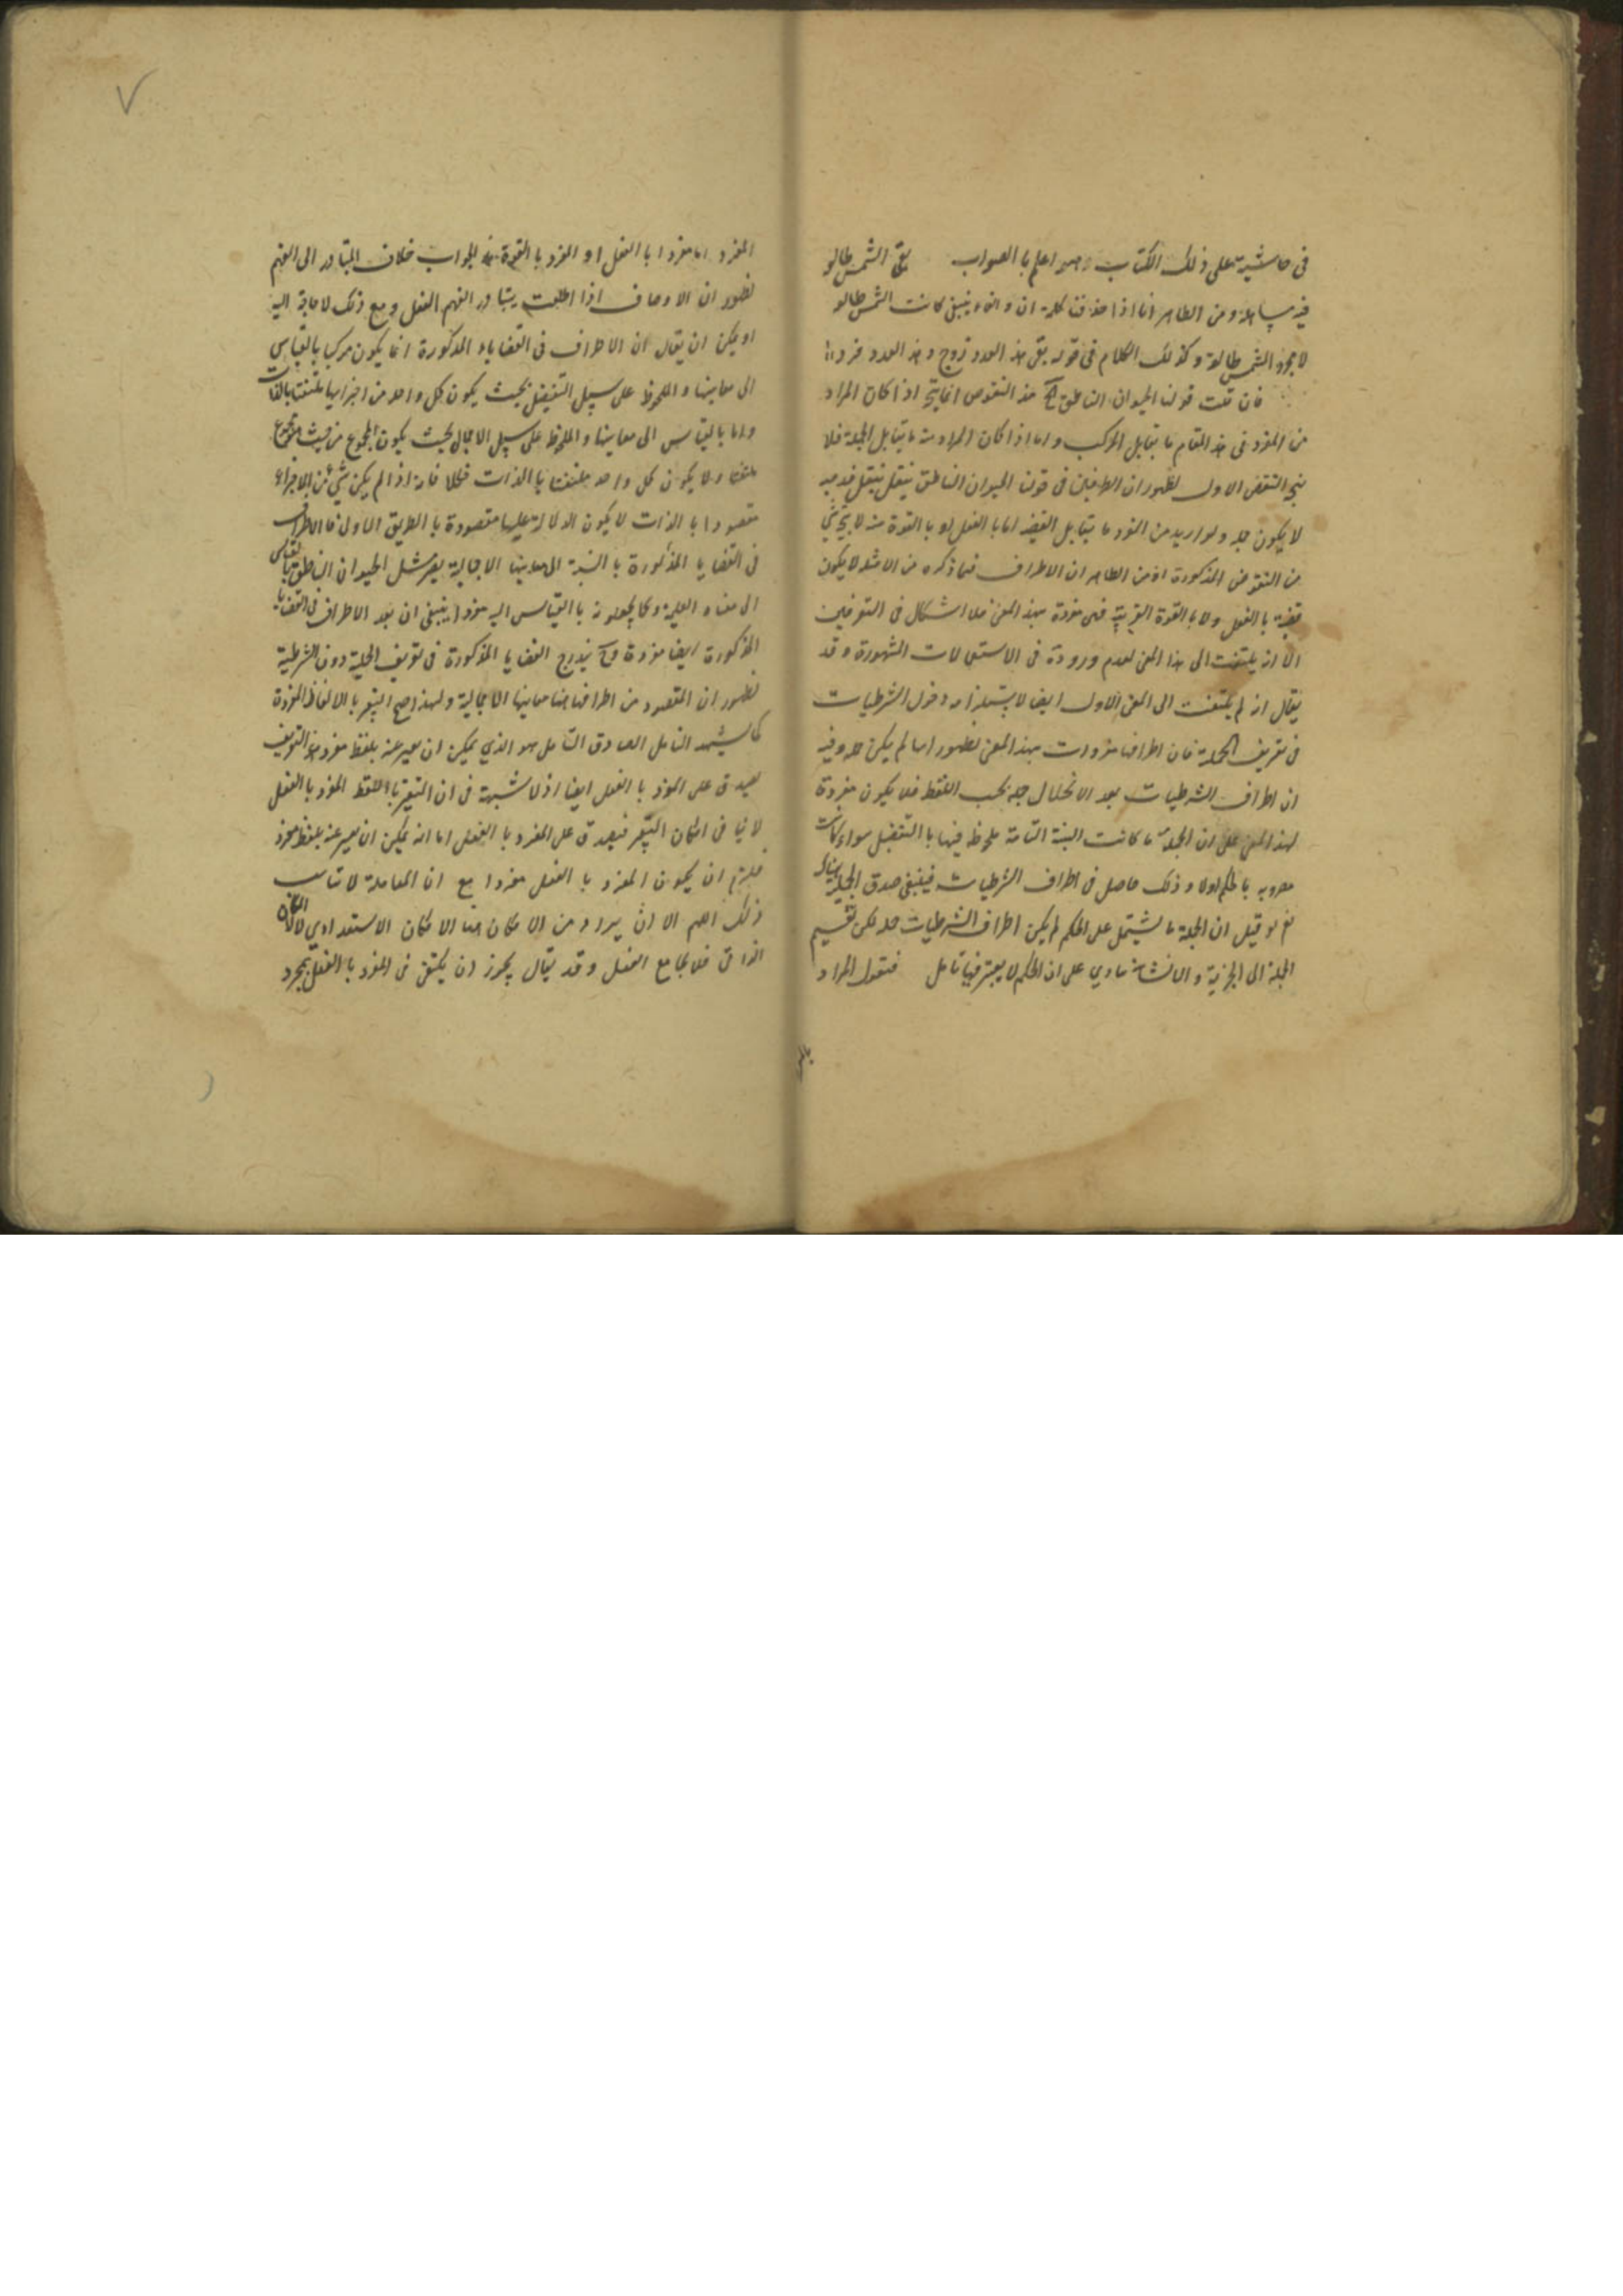 في حاشيته على ذلك الكتاب وهو اعلم با الصواب بقى الشمس طالعة
فيه مساهلة ومن الظاهر انا اذا حذفنا كلمة ان والفاء ينبغي كانت الشمس طالعة
لا مجرد الشمس طالعة وكذلك الكلام في قوله بقى هذا العدد زوج وهذا العدد فرد
فان قلت قولنا الحيوان الناطق هذه النقوض انما يتجه اذا كان المراد
من المفرد في هذا المقام ما يقابل المركب واما اذا كان المراد منه ما يقابل الجملة فلا
يتجه النقض الاول لظهور ان الطرفين في قولنا الحيوان الناطق ينتقل بنقل قدميه
لا يكون جملة ولو اريد من المفرد ما يقابل القضية اما با الفعل او با القوة منه لا يتجه شيء
من النقوض المذكورة اذ من الظاهر ان الاطراف فيما ذكره من الامثلة لا يكون
قضية با الفعل ولا با القوة القريبة فهي مفردة بهذا المعنى فلا اشكال في التعريفين
الا انه يلتفت الى هذا المعنى لعدم وروده في الاستعمالات المشهورة وقد
يقال انه لم يلتفت الى المعنى الاول ايضا لاستلزامه دخول الشرطيات
في تعريف الحملية فان اطرافها مفردات بهذا المعنى لظهور انها لم يكن جملة وفيه
ان اطراف الشرطيات بعد الانحلال جملة بحسب اللفظ فلا يكون مفردة
بهذا المعنى على ان الجملة ما كانت النسبة التامة ملحوظة فيها با التفصيل سواء كانت
با لحكم اولا وذلك حاصل في اطراف الشرطيات فينبغي صدق الجملة
نعم لو قيل ان الجملة ما يشتمل على الحكم لم يكن اطراف الشرطيات جملة لكن تقسيم
الجملة الى الخبرية والانشائية ينادي على ان الحكم لا يعتبر فيها تأمل فنقول المراد
المفرد اما مفردا با الفعل او المفرد با القوة هذا الجواب خلاف المتبادر الى الفهم
لظهور ان الاوصاف اذا اطلقت يتبادر الفهم الفعل ومع ذلك لا حاجة اليه
او يمكن ان يقال ان الاطراف في القضايا المذكورة انما يكون مركبا بالقياس
الى معانيها والملحوظ على سبيل التفصيل بحيث يكون كل واحد من اجزائها ملتفتا بالذات
واما با لقياس الى معانيها والملحوظ على سبيل الاجمال بحيث يكون المجموع من حيث المجموع
ملتفتا ولا يكون كل واحد ملتفتا با الذات فكلا فانه اذا لم يكن شيء من الاجزاء
مقصودا با الذات لا يكون الدلالة عليها مقصودة با الطريق الاولى فا الاطراف
في القضايا المذكورة با النسبة الى معانيها الاجمالية يعد مثل الحيوان الناطق بالقياس
الى معناه العلمي وكما يجعلونه با القياس اليه مفردا ينبغي ان يعد الاطراف في القضايا
المذكورة ايضا مفردة وح يندرج القضايا المذكورة في تعريف الحملية دون الشرطية
لظهور ان المقصود من اطرافها هنا معانيها الاجمالية ولهذا صح التعبير با الالفاظ المفردة
كما يشهد التأمل الصادق التأمل هو الذي يمكن ان يعبر عنه بلفظ مفرد هذا التعريف
يصدق على المفرد با الفعل ايضا اذ لا شبهة في ان التعبير با اللفظ المفرد با الفعل
لا ينافي امكان التعبير فيصدق على المفرد با الفعل اما انه يمكن ان يعبر عنه بلفظ مفرد
فيلزم ان يكون المفرد با الفعل مفردا مع ان المعاملة لا تناسب
ذلك اللهم الا ان يراد من الامكان هنا الامكان الاستعدادي لا الامكان
الذاتي فلا يجامع الفعل وقد يقال يجوز ان يكتفي في المفرد با الفعل بمجرد